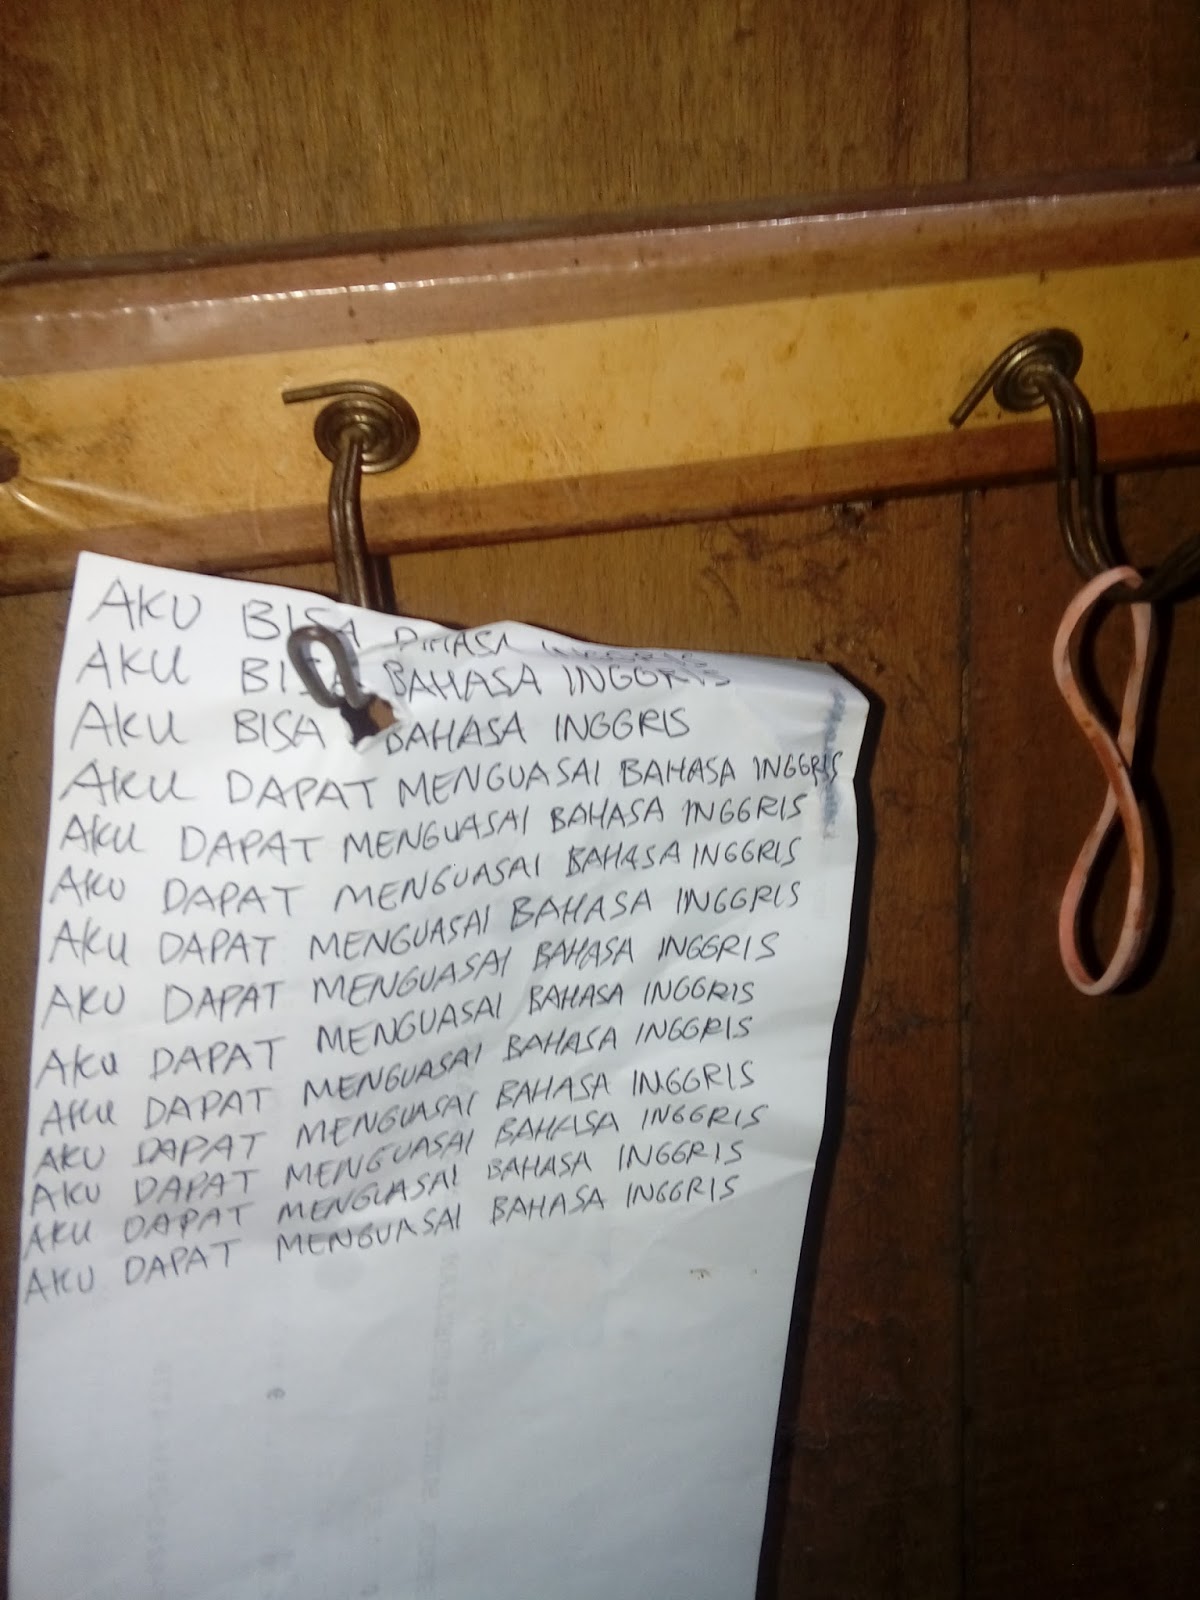 AKU BISA BAHASA INGGRIS
AKU BISA BAHASA INGGRIS
AKU BISA BAHASA INGGRIS
AKU DAPAT MENGUASAI BAHASA INGGRIS
AKU DAPAT MENGUASAI BAHASA INGGRIS
AKU DAPAT MENGUASAI BAHASA INGGRIS
AKU DAPAT MENGUASAI BAHASA INGGRIS
AKU DAPAT MENGUASAI BAHASA INGGRIS
AKU DAPAT MENGUASAI BAHASA INGGRIS
AKU DAPAT MENGUASAI BAHASA INGGRIS
AKU DAPAT MENGUASAI BAHASA INGGRIS
AKU DAPAT MENGUASAI BAHASA INGGRIS
AKU DAPAT MENGUASAI BAHASA INGGRIS
AKU DAPAT MENGUASAI BAHASA INGGRIS